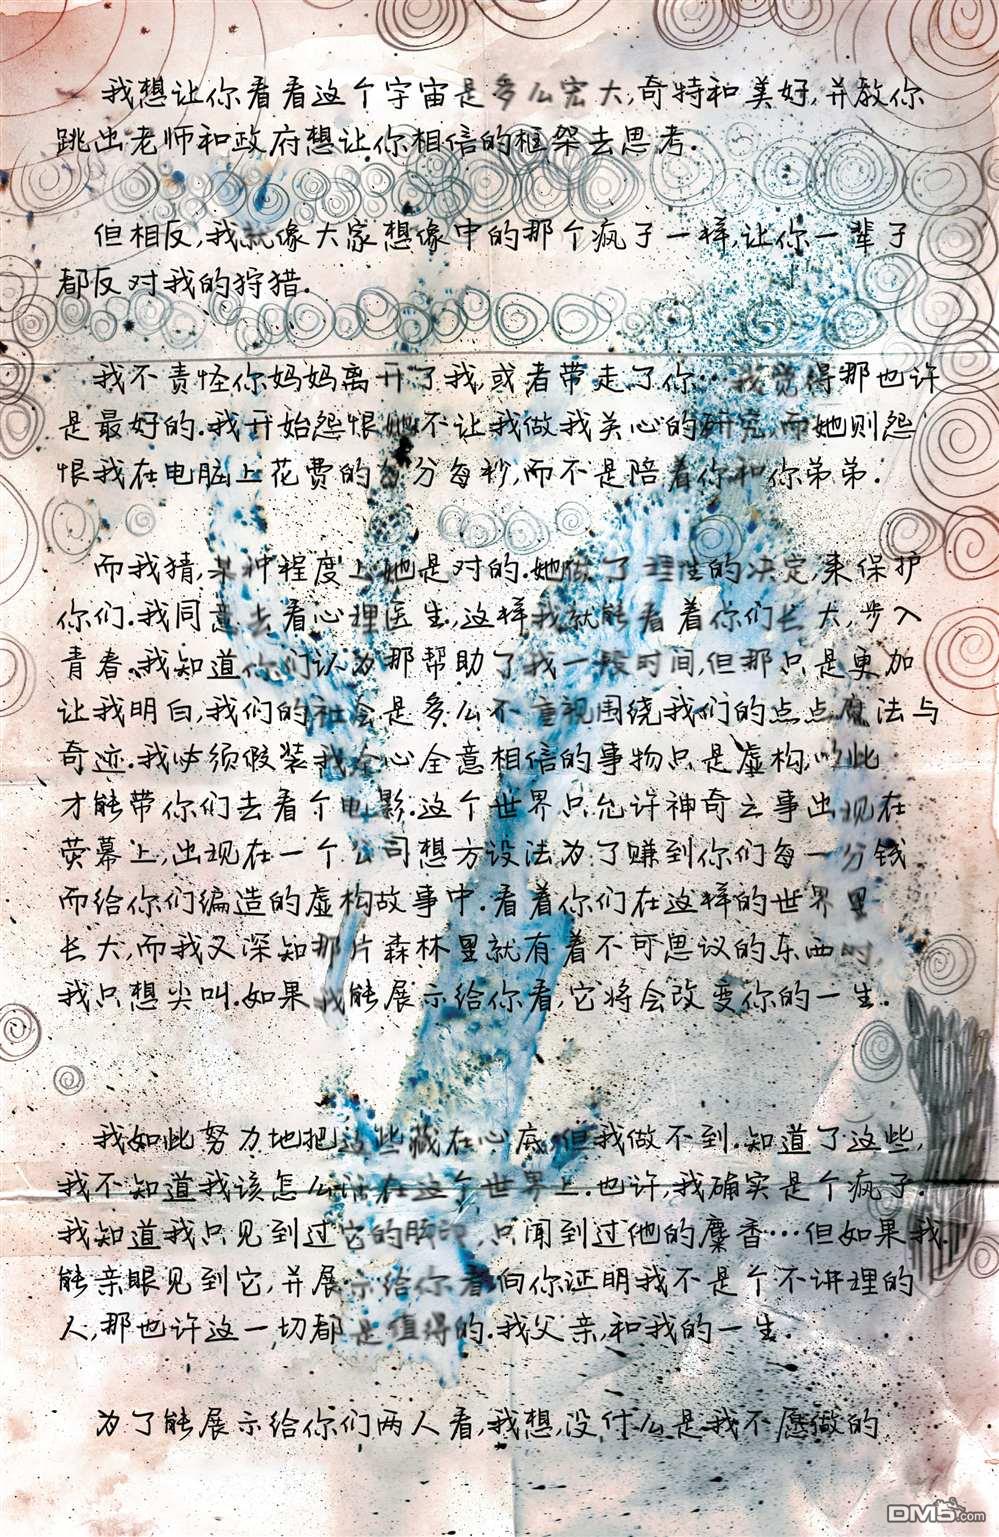 我想让你看看这个宇宙是多么宏大,奇特和美好,并教你
跳出老师和政府想让你相信的框架去思考.
但相反,我就像大家想像中的那个疯子一样,让你一辈子
都反对我的狩猎.
我不责怪你妈妈离开了我,或者带走了你…我觉得那也许
是最好的.我开始怨恨她不让我做我关心的研究,而她则怨
恨我在电脑上花费的每分每秒,而不是陪着你和你弟弟.
而我猜,某种程度上她是对的.她做了理性的决定,来保护
你们.我同意去看心理医生,这样我就能看着你们长大,步入
青春.我知道你们认为那帮助了我一段时间,但那只是更加
让我明白,我们的社会是多么不重视围绕我们的点点魔法与
奇迹.我必须假装我全心全意相信的事物只是虚构,以此
才能带你们去看个电影.这个世界只允许神奇之事出现在
荧幕上,出现在一个公司想方设法为了赚到你们每一分钱
而给你们编造的虚构故事中.看着你们在这样的世界里
长大,而我又深知那片森林里就有着不可思议的东西时,
我只想尖叫.如果我能展示给你看,它将会改变你的一生.
我如此努力地把这些藏在心底,但我做不到.知道了这些,
我不知道我该怎么活在这个世界上.也许,我确实是个疯子.
我知道我只见到过它的脚印,只闻到过他的麝香…但如果我
能亲眼见到它,并展示给你看,向你证明我不是个不讲理的
人,那也许这一切都是值得的.我父亲,和我的一生.
为了能展示给你们两人看,我想,没什么是我不愿做的
DM5.com